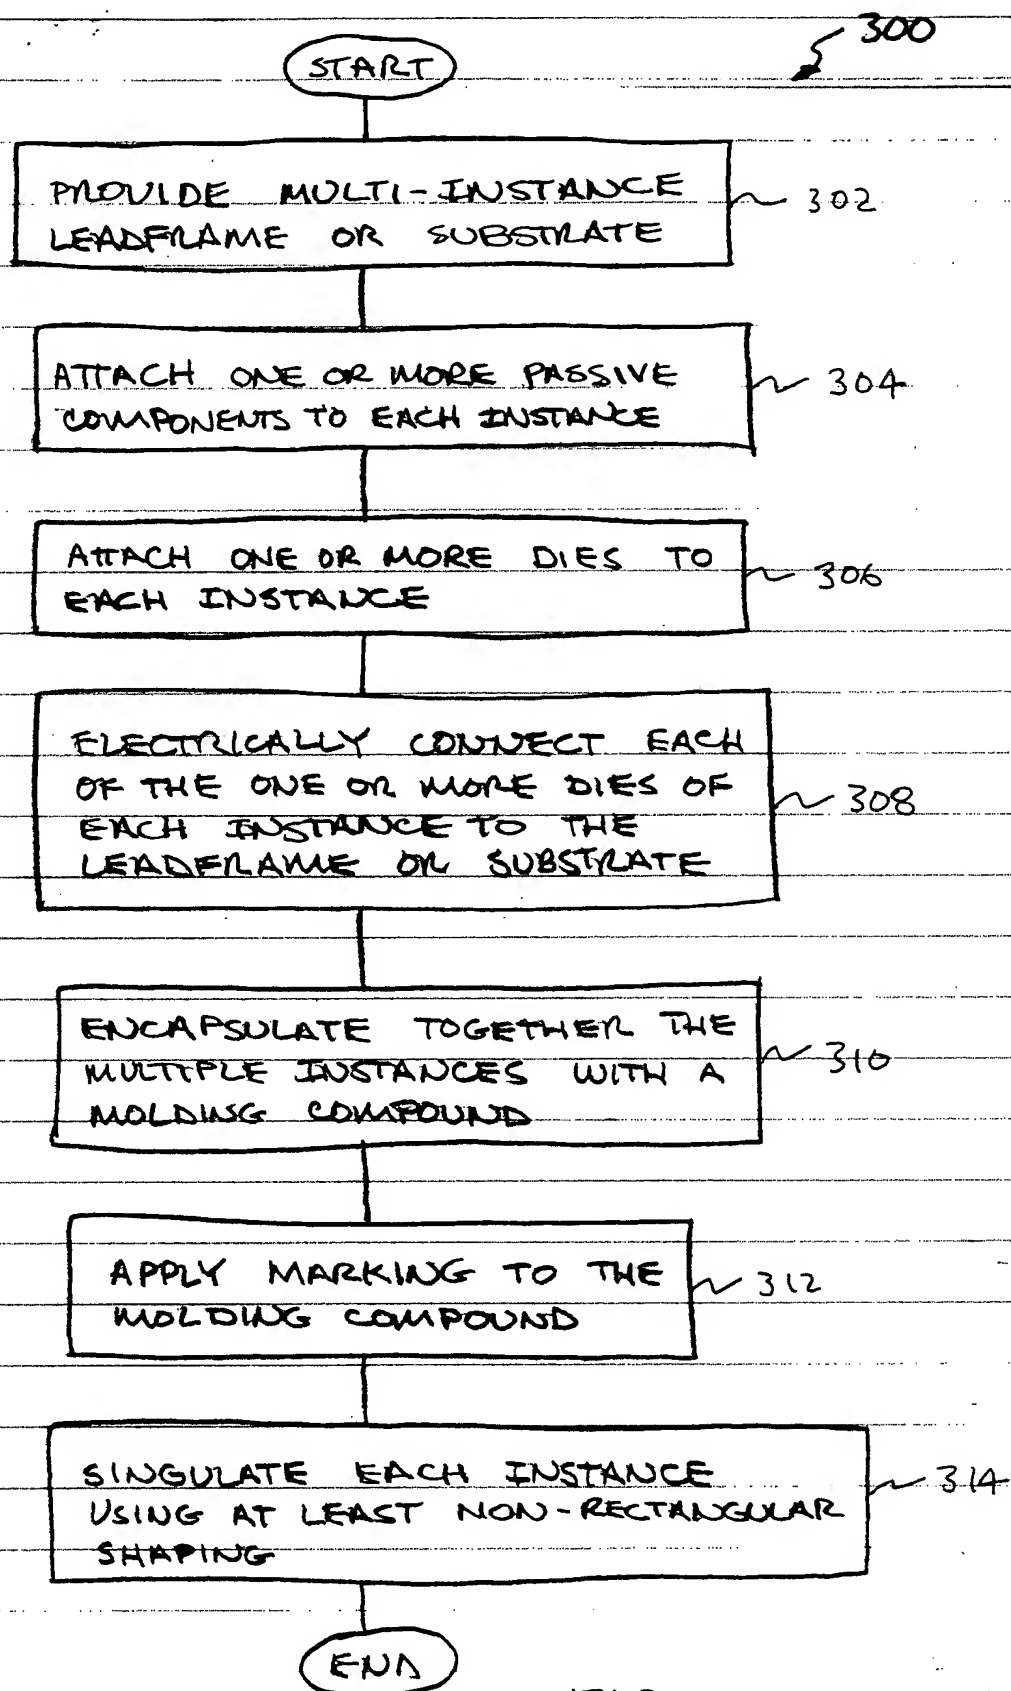 300
START
PROVIDE MULTI-INSTANCE
LEADFRAME OR SUBSTRATE
302
ATTACH ONE OR MORE PASSIVE
COMPONENTS TO EACH INSTANCE
304
ATTACH ONE OR MORE DIES TO
EACH INSTANCE
306
ELECTRICALLY CONNECT EACH
OF THE ONE OR MORE DIES OF
EACH INSTANCE TO THE
LEADFRAME OR SUBSTRATE
308
ENCAPSULATE TOGETHER THE
MULTIPLE INSTANCES WITH A
MOLDING COMPOUND
310
APPLY MARKING TO THE
MOLDING COMPOUND
312
SINGULATE EACH INSTANCE
USING AT LEAST NON-RECTANGULAR
SHAPING
314
END